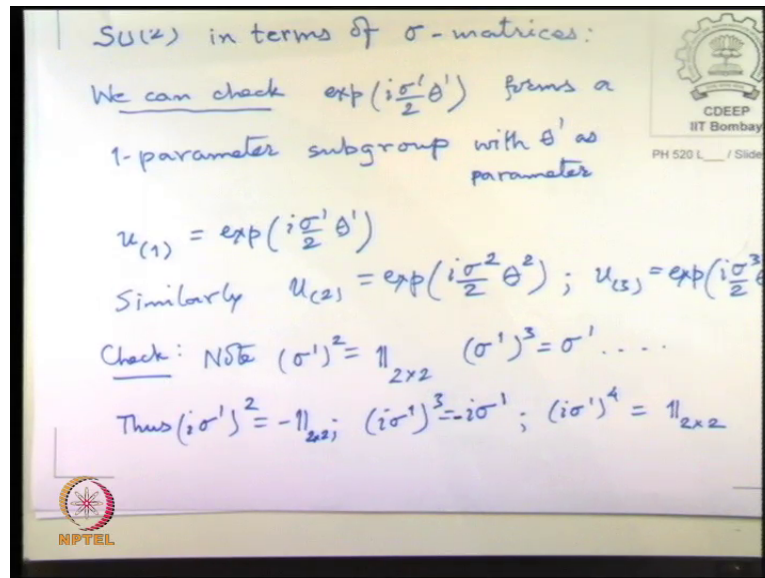 SU(2) in terms of σ-matrices:
We can check exp(i σ¹/2 θ¹) forms a
1-parameter subgroup with θ¹ as
parameter
u₍₁₎ = exp(i σ¹/2 θ¹)
Similarly u₍₂₎ = exp(i σ²/2 θ²) ; u₍₃₎ = exp(i σ³/2
Check: Note (σ¹)² = 𝟙₂ₓ₂ (σ¹)³ = σ¹ ....
Thus (iσ¹)² = -𝟙₂ₓ₂; (iσ¹)³ = -iσ¹ ; (iσ¹)⁴ = 𝟙₂ₓ₂
CDEEP
IIT Bombay
PH 520 L___ / Slide
NPTEL